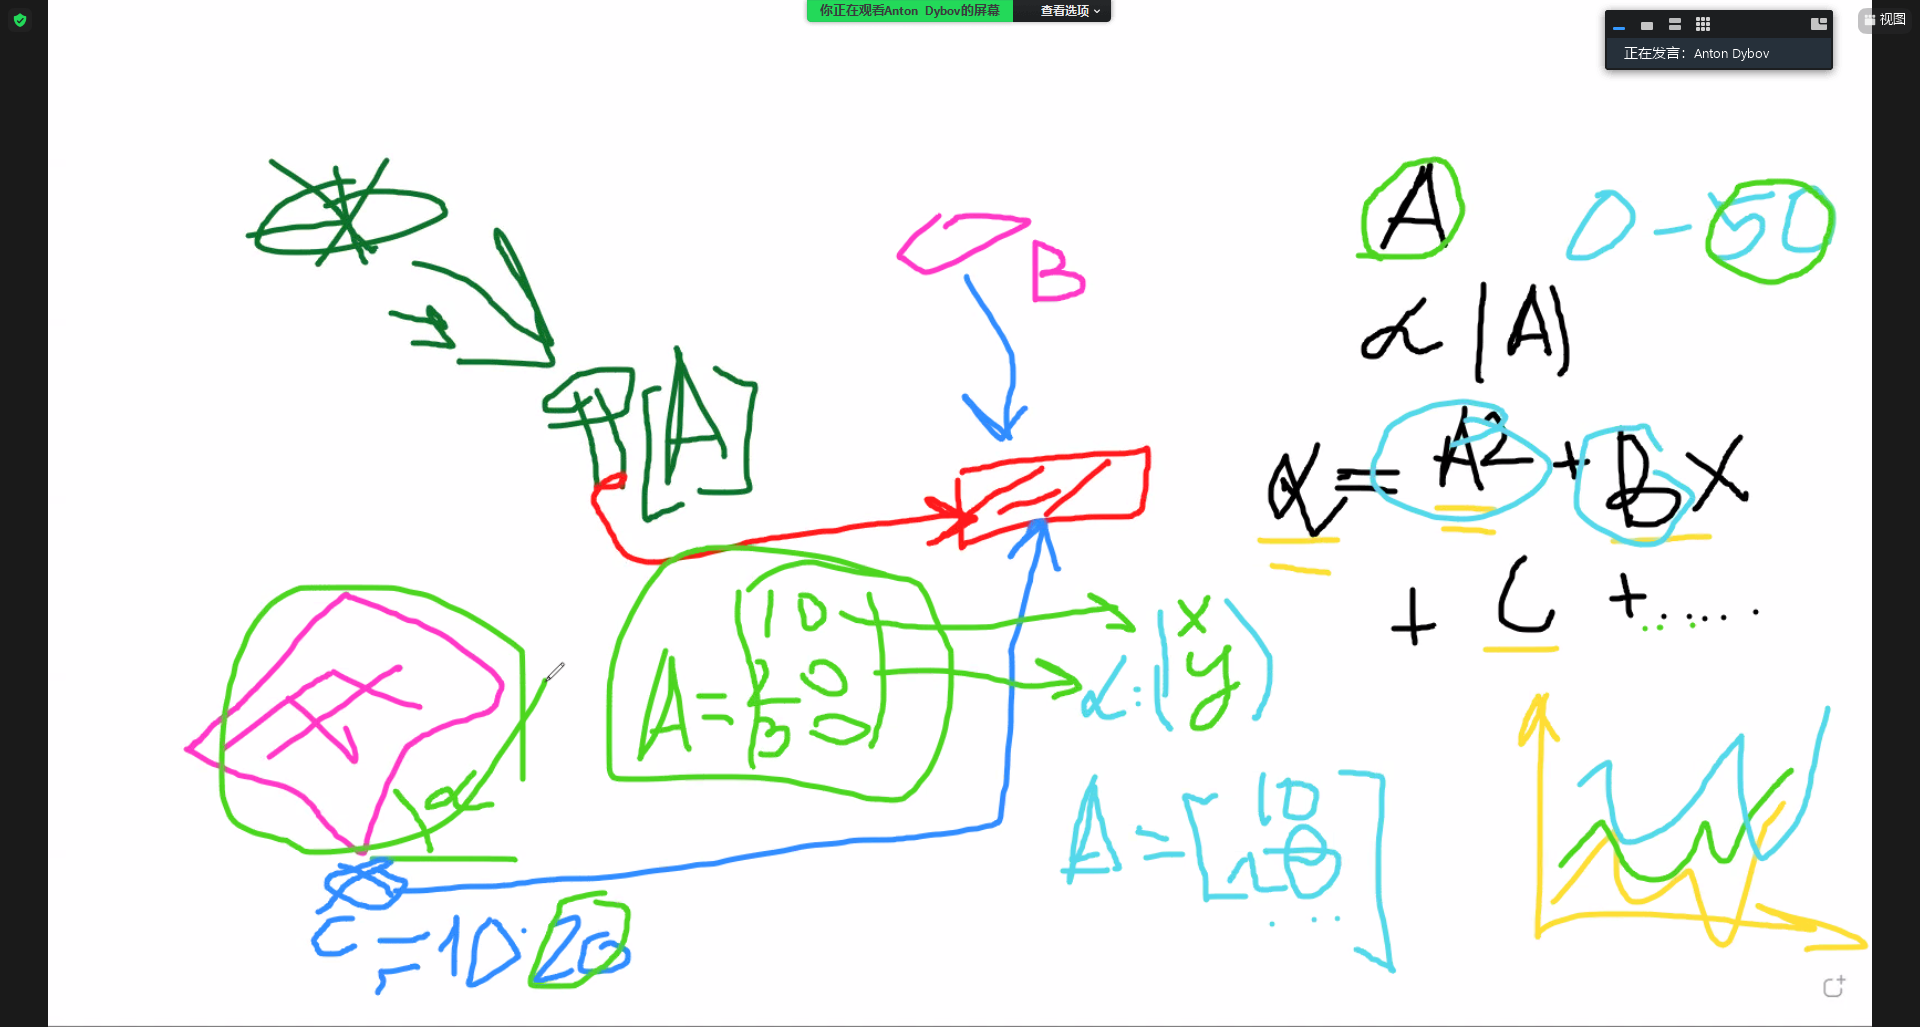 你正在观看Anton Dybov的屏幕
查看选项
视图
正在发言: Anton Dybov
A
0-50
B
α |A|
[A]
α = A2 + Bx
+ C + .....
A = 10
20
30
x
α: y
α
A = 10
20
...
C = 10:20